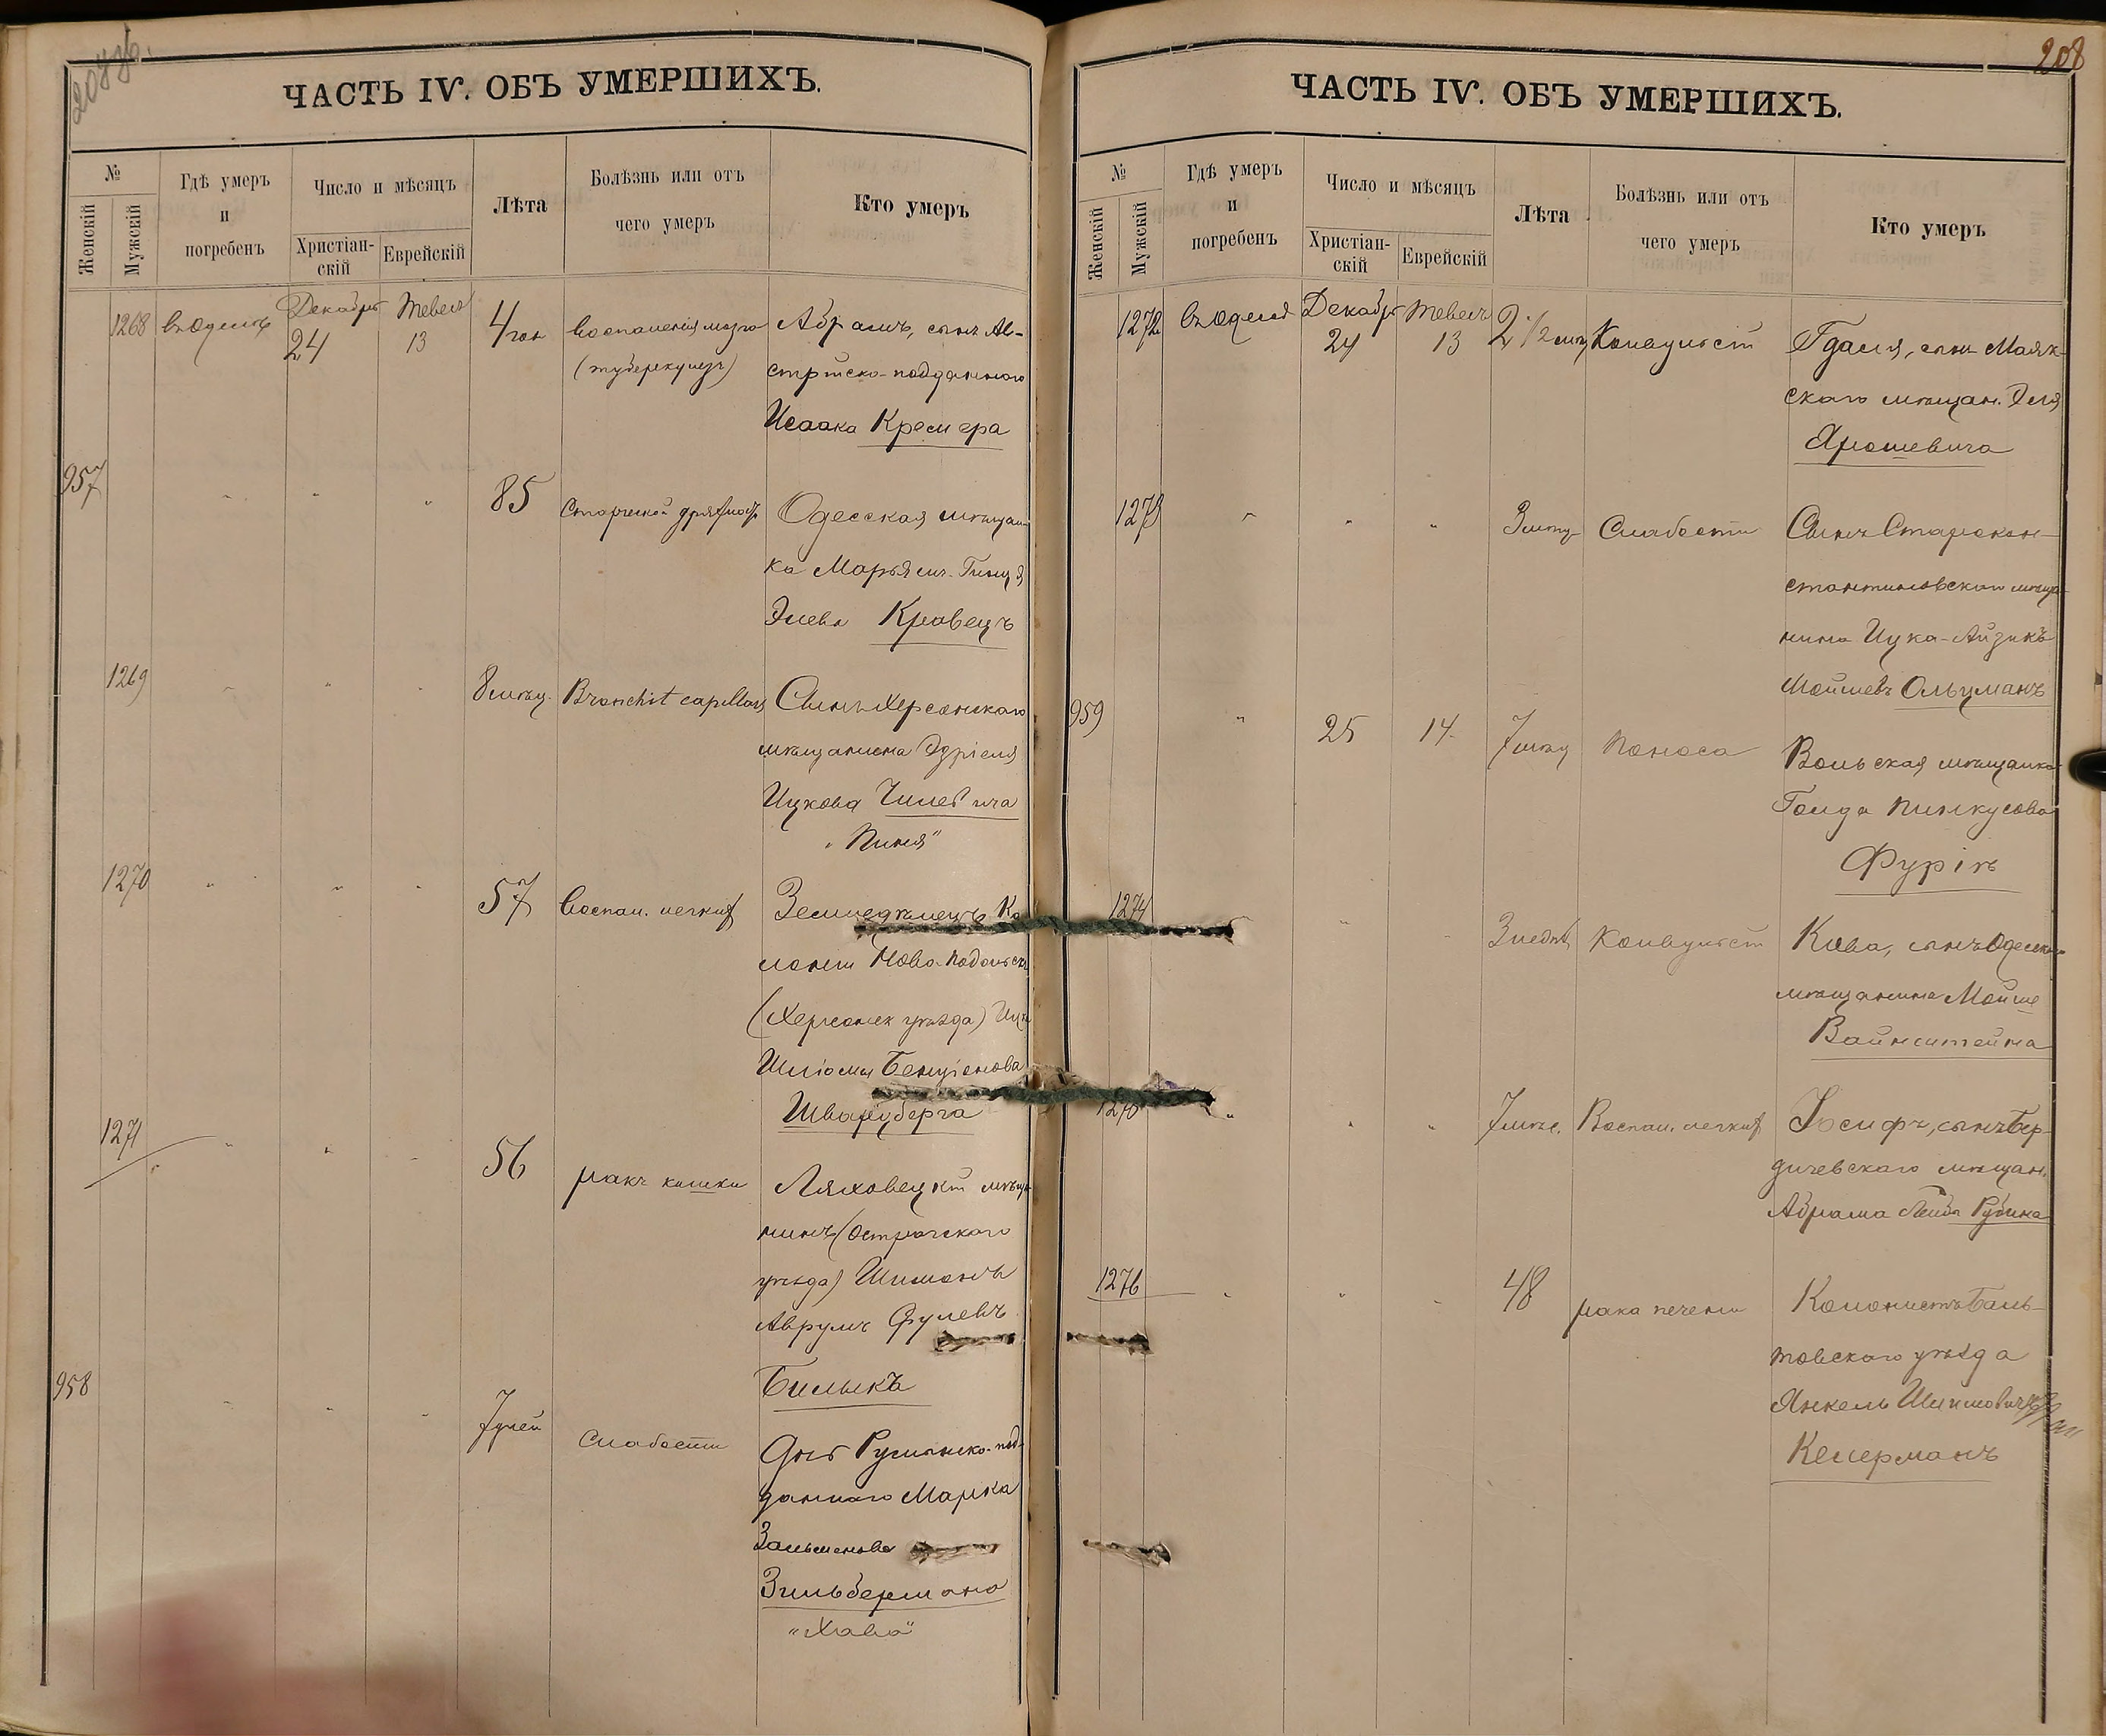 ЧАСТЬ IV. ОБЪ УМЕРШИХЪ.
№
Женскій
Мужскій
Гдѣ умеръ
и
погребенъ
Число и мѣсяцъ
Христіан-
скій
Еврейскій
Лѣта
Болѣзнь или отъ
чего умеръ
Кто умеръ
1268 въ Одессѣ Декабря 24 Тевеса 13 4 год Воспаленія мозга
(туберкулезъ)
Абрамъ, сынъ Ав-
стрійско-подданного
Исаака Кремера
957 " " " 85 Старческой дряхлости
Одесская мѣщан
ка Марьям-
Элева Кравецъ
1269 " " " 8 мѣсяц. Bronchit capillars
Сынъ Херсонскаго
мѣщанина Эзріеля
Ицкова Чилевича
"Пиня"
1270 " " " 57 Воспал. легкихъ
Земледѣлецъ Ко
лоніи Ново-Подольск
(Херсонск уѣзда) Ицк
Шліома Бенціонова
Шварцберга
1271 " " " 56 ракъ кишки
Ляховецкій мѣща
нинъ (Острогского
уѣзда) Шимонъ
Аврумъ
Билыкъ
958 " " " 7 дней Слабости
Дочь Румынско-под-
даннаго Марка
Зальменова
Зильбермана
"Хава"
208
ЧАСТЬ IV. ОБЪ УМЕРШИХЪ.
№
Женскій
Мужскій
Гдѣ умеръ
и
погребенъ
Число и мѣсяцъ
Христіан-
скій
Еврейскій
Лѣта
Болѣзнь или отъ
чего умеръ
Кто умеръ
1272 въ Одессѣ Декабр 24 Тевесъ 13 2 1/2 мѣс Конвульсій
Гдаля, сынъ Маяк-
скаго мѣщан. Эля
Ярошевича
1273 " " " 3 мѣсц Слабости
Сынъ Старокон-
стантиновскаго мѣща-
нина Ицка-Айзикъ
Мошлевъ Ольцманъ
959 " 25 14 7 мѣсц Поноса
Вольская мѣщанка
Голда Пинкусова
Фурінъ
1274 " " " 3 недѣл Конвульсій
Кива, сынъ Одесск
мѣщанина Мойше
Вайнштейна
1275 " " " 7 мѣс. Воспал. легкихъ
Іосифъ, сынъ Бер-
дичевскаго мѣщан.
Абрама Лейба Рубина
1276 " " " 48 рака печени
Колонистъ Баль-
товскаго уѣзда
Янкель Шимовичъ
Келерманъ